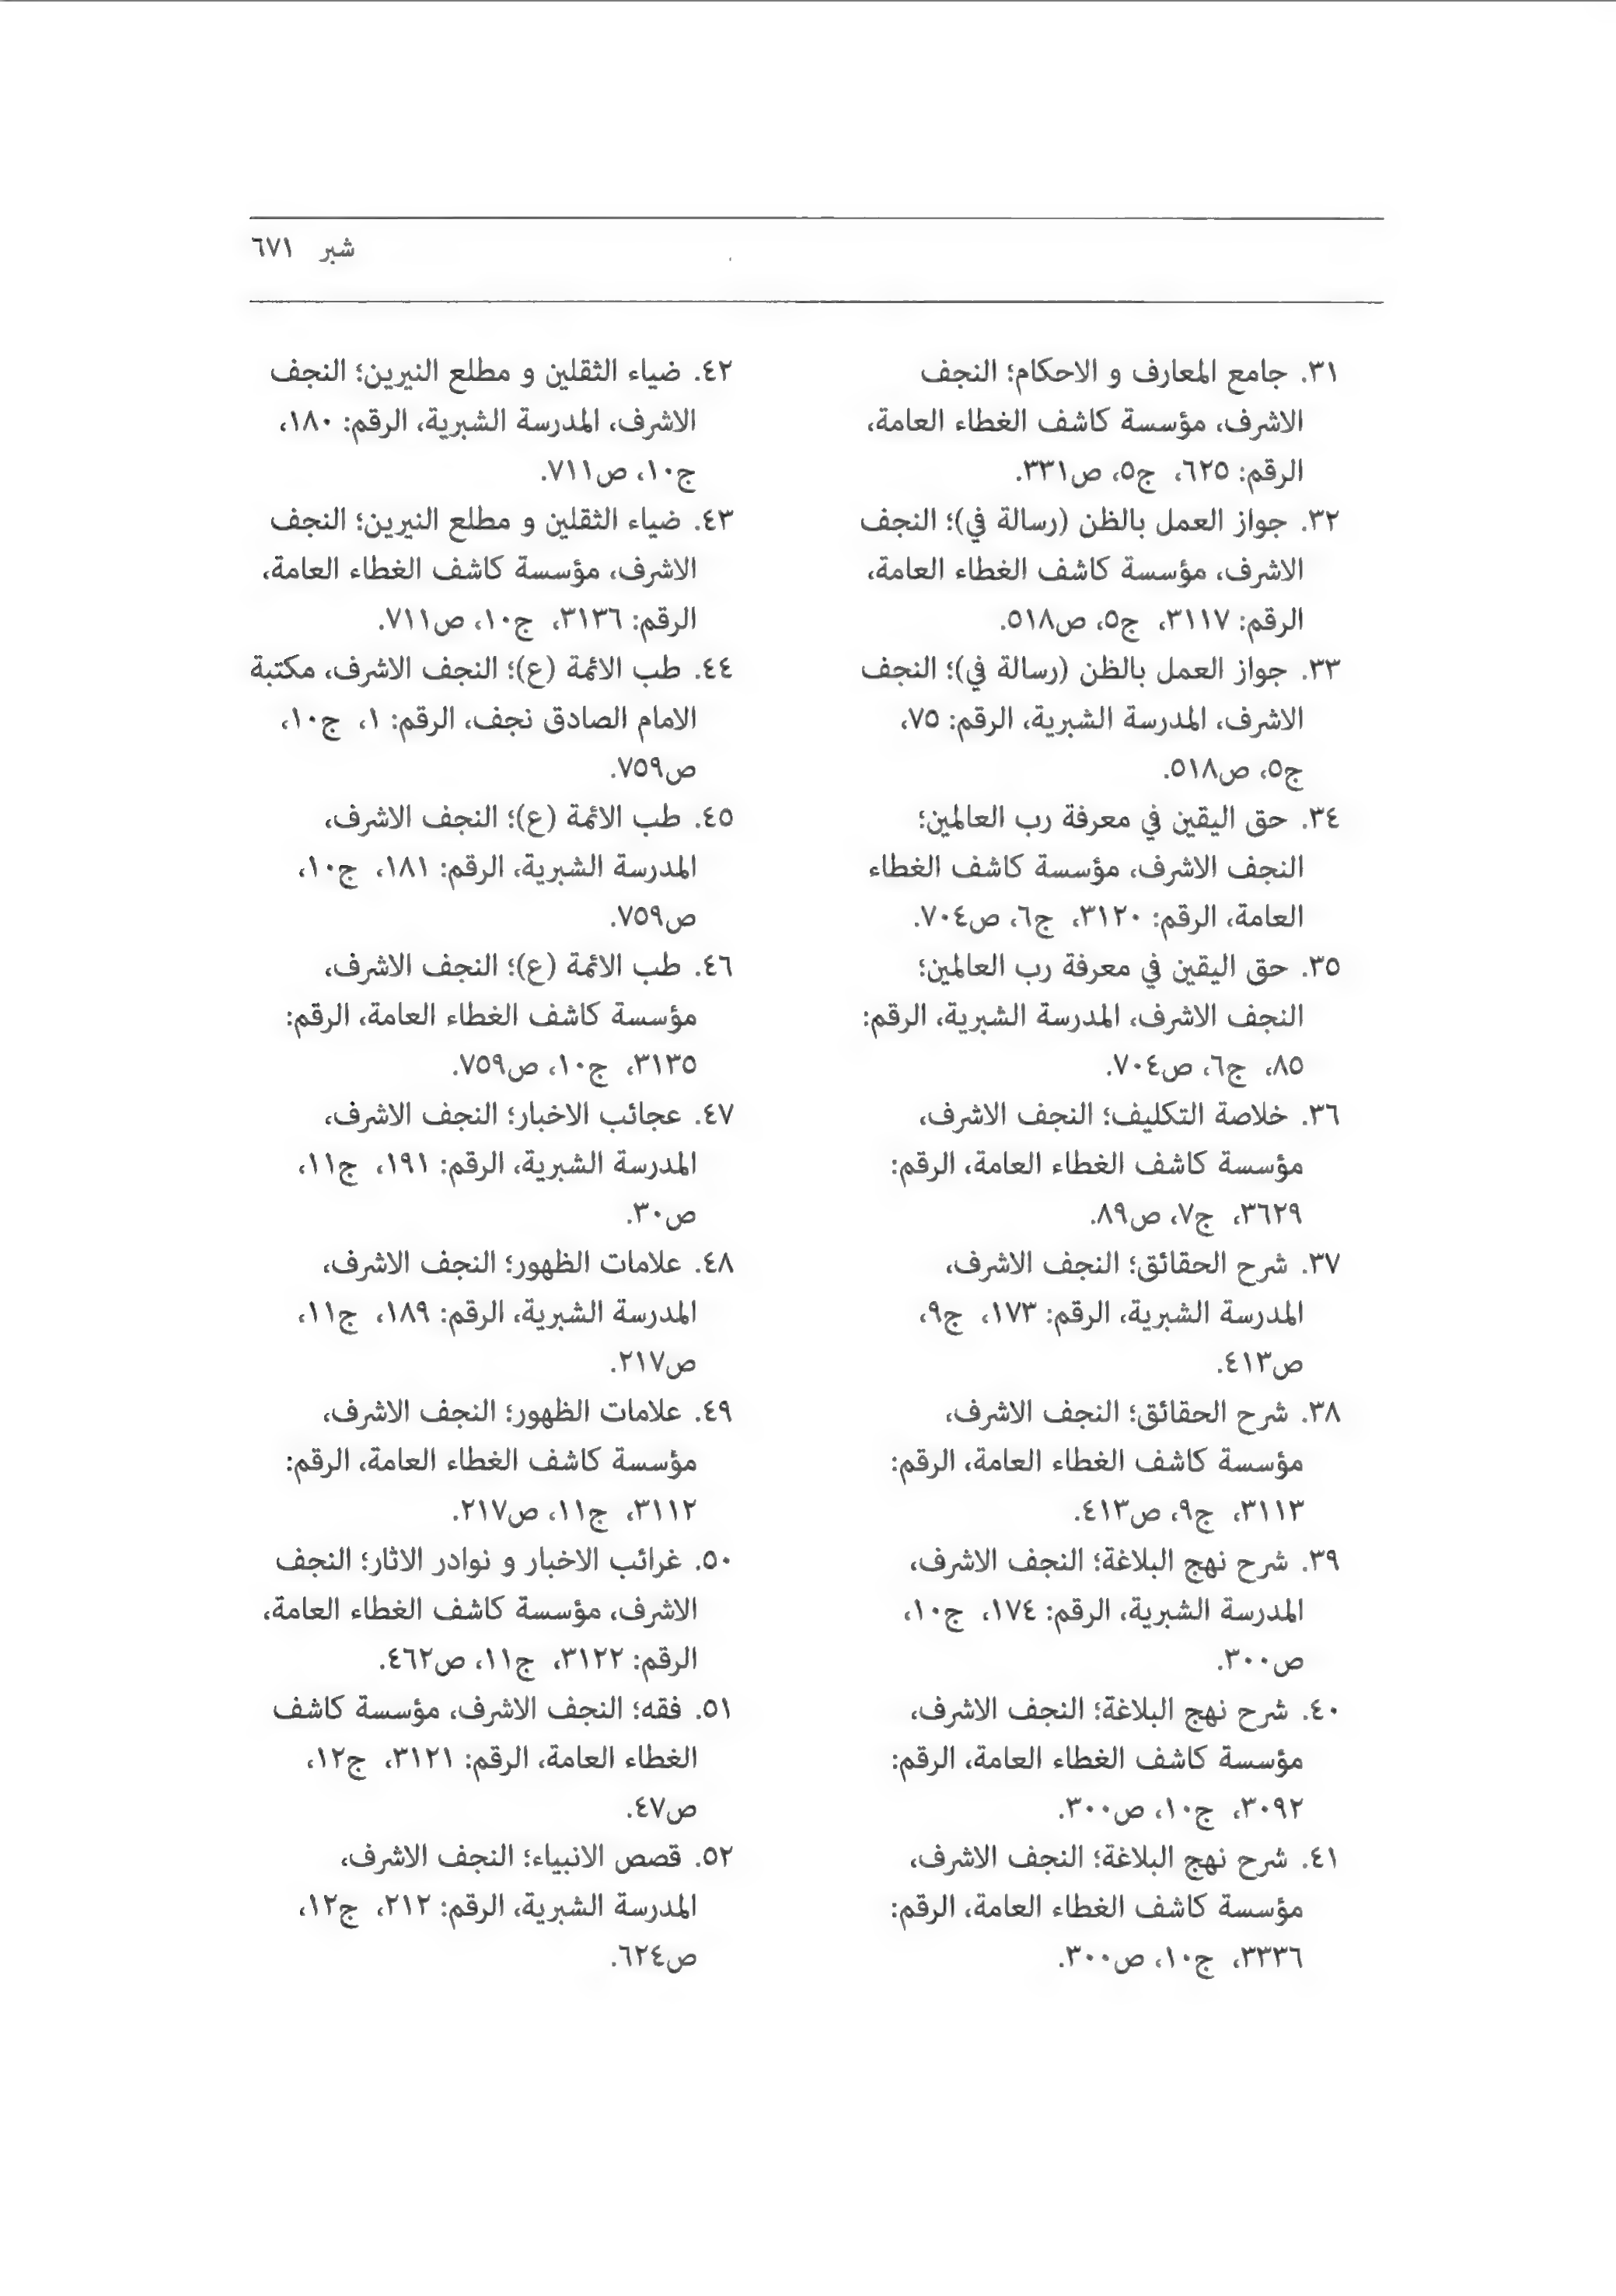 شبر ٦٧١
٣١. جامع المعارف و الاحكام؛ النجف
الاشرف، مؤسسة كاشف الغطاء العامة،
الرقم: ٦٢٥، ج٥، ص٣٣١.
٣٢. جواز العمل بالظن (رسالة في)؛ النجف
الاشرف، مؤسسة كاشف الغطاء العامة،
الرقم: ٣١١٧، ج٥، ص٥١٨.
٣٣. جواز العمل بالظن (رسالة في)؛ النجف
الاشرف، المدرسة الشبرية، الرقم: ٧٥،
ج٥، ص٥١٨.
٣٤. حق اليقين في معرفة رب العالمين؛
النجف الاشرف، مؤسسة كاشف الغطاء
العامة، الرقم: ٣١٢٠، ج٦، ص٧٠٤.
٣٥. حق اليقين في معرفة رب العالمين؛
النجف الاشرف، المدرسة الشبرية، الرقم:
٨٥، ج٦، ص٧٠٤.
٣٦. خلاصة التكليف؛ النجف الاشرف،
مؤسسة كاشف الغطاء العامة، الرقم:
٣٦٢٩، ج٧، ص٨٩.
٣٧. شرح الحقائق؛ النجف الاشرف،
المدرسة الشبرية، الرقم: ١٧٣، ج٩،
ص٤١٣.
٣٨. شرح الحقائق؛ النجف الاشرف،
مؤسسة كاشف الغطاء العامة، الرقم:
٣١١٣، ج٩، ص٤١٣.
٣٩. شرح نهج البلاغة؛ النجف الاشرف،
المدرسة الشبرية، الرقم: ١٧٤، ج١٠،
ص٣٠٠.
٤٠. شرح نهج البلاغة؛ النجف الاشرف،
مؤسسة كاشف الغطاء العامة، الرقم:
٣٠٩٢، ج١٠، ص٣٠٠.
٤١. شرح نهج البلاغة؛ النجف الاشرف،
مؤسسة كاشف الغطاء العامة، الرقم:
٣٣٣٦، ج١٠، ص٣٠٠.
٤٢. ضياء الثقلين و مطلع النيرين؛ النجف
الاشرف، المدرسة الشبرية، الرقم: ١٨٠،
ج١٠، ص٧١١.
٤٣. ضياء الثقلين و مطلع النيرين؛ النجف
الاشرف، مؤسسة كاشف الغطاء العامة،
الرقم: ٣١٣٦، ج١٠، ص٧١١.
٤٤. طب الائمة (ع)؛ النجف الاشرف، مكتبة
الامام الصادق نجف، الرقم: ١، ج١٠،
ص٧٥٩.
٤٥. طب الائمة (ع)؛ النجف الاشرف،
المدرسة الشبرية، الرقم: ١٨١، ج١٠،
ص٧٥٩.
٤٦. طب الائمة (ع)؛ النجف الاشرف،
مؤسسة كاشف الغطاء العامة، الرقم:
٣١٣٥، ج١٠، ص٧٥٩.
٤٧. عجائب الاخبار؛ النجف الاشرف،
المدرسة الشبرية، الرقم: ١٩١، ج١١،
ص٣٠.
٤٨. علامات الظهور؛ النجف الاشرف،
المدرسة الشبرية، الرقم: ١٨٩، ج١١،
ص٢١٧.
٤٩. علامات الظهور؛ النجف الاشرف،
مؤسسة كاشف الغطاء العامة، الرقم:
٣١١٢، ج١١، ص٢١٧.
٥٠. غرائب الاخبار و نوادر الاثار؛ النجف
الاشرف، مؤسسة كاشف الغطاء العامة،
الرقم: ٣١٢٢، ج١١، ص٤٦٢.
٥١. فقه؛ النجف الاشرف، مؤسسة كاشف
الغطاء العامة، الرقم: ٣١٢١، ج١٢،
ص٤٧.
٥٢. قصص الانبياء؛ النجف الاشرف،
المدرسة الشبرية، الرقم: ٢١٢، ج١٢،
ص٦٢٤.